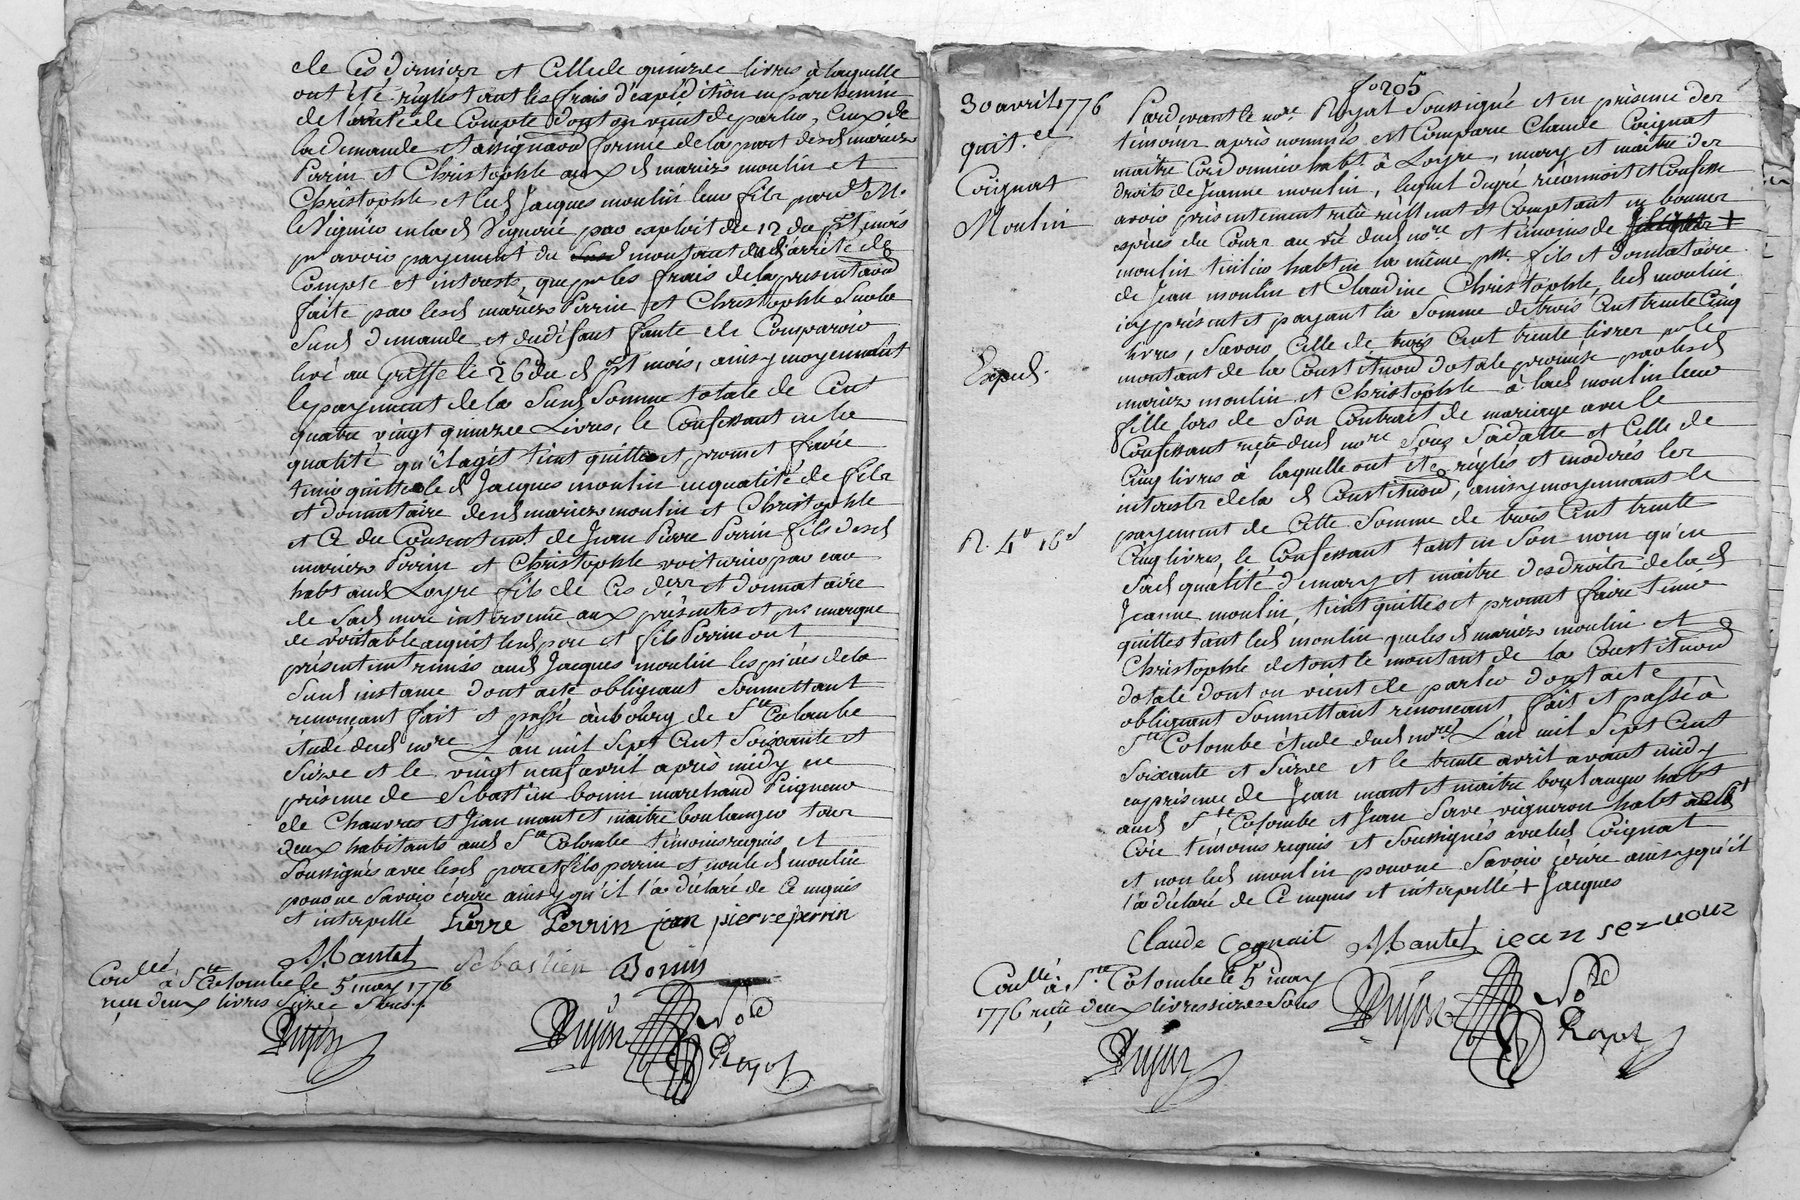 de Ces dernier et Celle de quinze livres à laquelle
ont été réglés tant les frais d'expédition en parchemin
de l'arrêté de Compte dont on vient de parler, Ceux de
la demande et assignaõn formée de la part desd mariez
Perrin et Christophle aux d mariez moulin et
Christophle et led Jacques moulin leur fils pard.t M.e
le Viguier en lad Viguerie par exploit du 12 du p.nt mois
pr avoir payement du montant dud arrêté de
Compte et interets, que pr les frais de la presentaõn
faite par lesd mariez Perrin et Christophle Sur la
Susd demande et du défaut faute de Comparoir
levé au Greffe le 26 du d p.nt mois, ainsy moyennant
le payement de la Susd Somme totale de Cent
quatre vingt quinze Livres, le Confessant en la
qualité qu'il agit tient quitte et promet faire
tenir quitte led Jacques moulin en qualité de fils
et donnataire desd mariez moulin et Christophle
et Ce du Consentem.t de Jean Pierre Perrin fils desd
mariez Perrin et Christophle voiturier par eau
hab.t aud Loyre fils de Ces d.ers et donnataire
de Sad mere intervenu aux présentes et pr marque
de véritable acquit lesd pere et fils Perrin ont
présentem.t remis aud Jacques moulin les pièces de la
Susd instance dont acte obligeant Soumettant
renonçant fait et passé au bourg de S.te Colombe
étude dud no.re L'an mil Sept Cent Soixante et
Seize et le vingt neuf avril après midy en
présence de Sébastien bonin marchand Peigneur
de Chanvres et Jean mantet maitre boulanger tous
deux habitants aud S.te Colombe témoins requis et
Soussignés avec lesd pere et fils perrin et non led moulin
pour ne Savoir écrire ainsy qu'il l'a déclaré de Ce enquis
et interpellé Pierre Perrin jean pierre perrin
JMantet Sebastien Bonin
Con.llé à S.te Colombe le 5 may 1776
reçu deux livres Seize Sous
Dujon
Dujon No.re
Royal
f.o 205
30 avril 1776
quit.ce
Coignat
Moulin
Expéd.
R. 4# 16s
Pardevant le no.re Royal Soussigné et en présence des
témoins après nommés est Comparu Claude Coignat
maitre Cordonnier hab.t à Loyre, mary et maître des
droits de Jeanne moulin, lequel de gré reconnoit et Confesse
avoir présentement reçu réellem.t et Comptant en bonnes
espèces du Cours au vû dud no.re et témoins de +
moulin tuilier hab.t en la même p.sse fils et donnataire
de Jean moulin et Claudine Christophle, led moulin
icy présent et payant la Somme de trois Cent trente Cinq
livres, Savoir Celle de trois Cent trente livres pr le
montant de la Constituõn dotale promise par lesd
mariez moulin et Christophle à lad moulin leur
fille lors de Son Contrat de mariage avec le
Confessant reçu dud no.re Sous Sa datte et Celle de
Cinq livres à laquelle ont été réglés et moderés les
interets de la d Constituõn, ainsy moyennant le
payement de Cette Somme de trois Cent trente
Cinq livres, le Confessant tant en Son nom qu'en
Sad qualité de mary et maitre des droits de la d
Jeanne moulin, tient quitte et promet faire tenir
quittes tant led moulin que les d mariez moulin et
Christophle de tout le montant de la Constituõn
dotale dont on vient de parler dont acte
obligeant Soumettant renonçant fait et passé à
S.te Colombe étude dud no.re L'an mil Sept Cent
Soixante et Seize et le trente avril avant midy
en présence de Jean mantet maitre boulanger hab.t
aud S.te Colombe et Jean Serve vigneron hab.t à S.t
Cire témoins requis et Soussignés avec led Coignat
et non led moulin pour ne Savoir écrire ainsy qu'il
l'a déclaré de Ce enquis et interpellé + Jacques
Claude Cognait JMantet jean
Con.llé à S.te Colombe le 5 may
1776 reçu deux livres seize Sous
Dujon No.re
Royal
Dujon